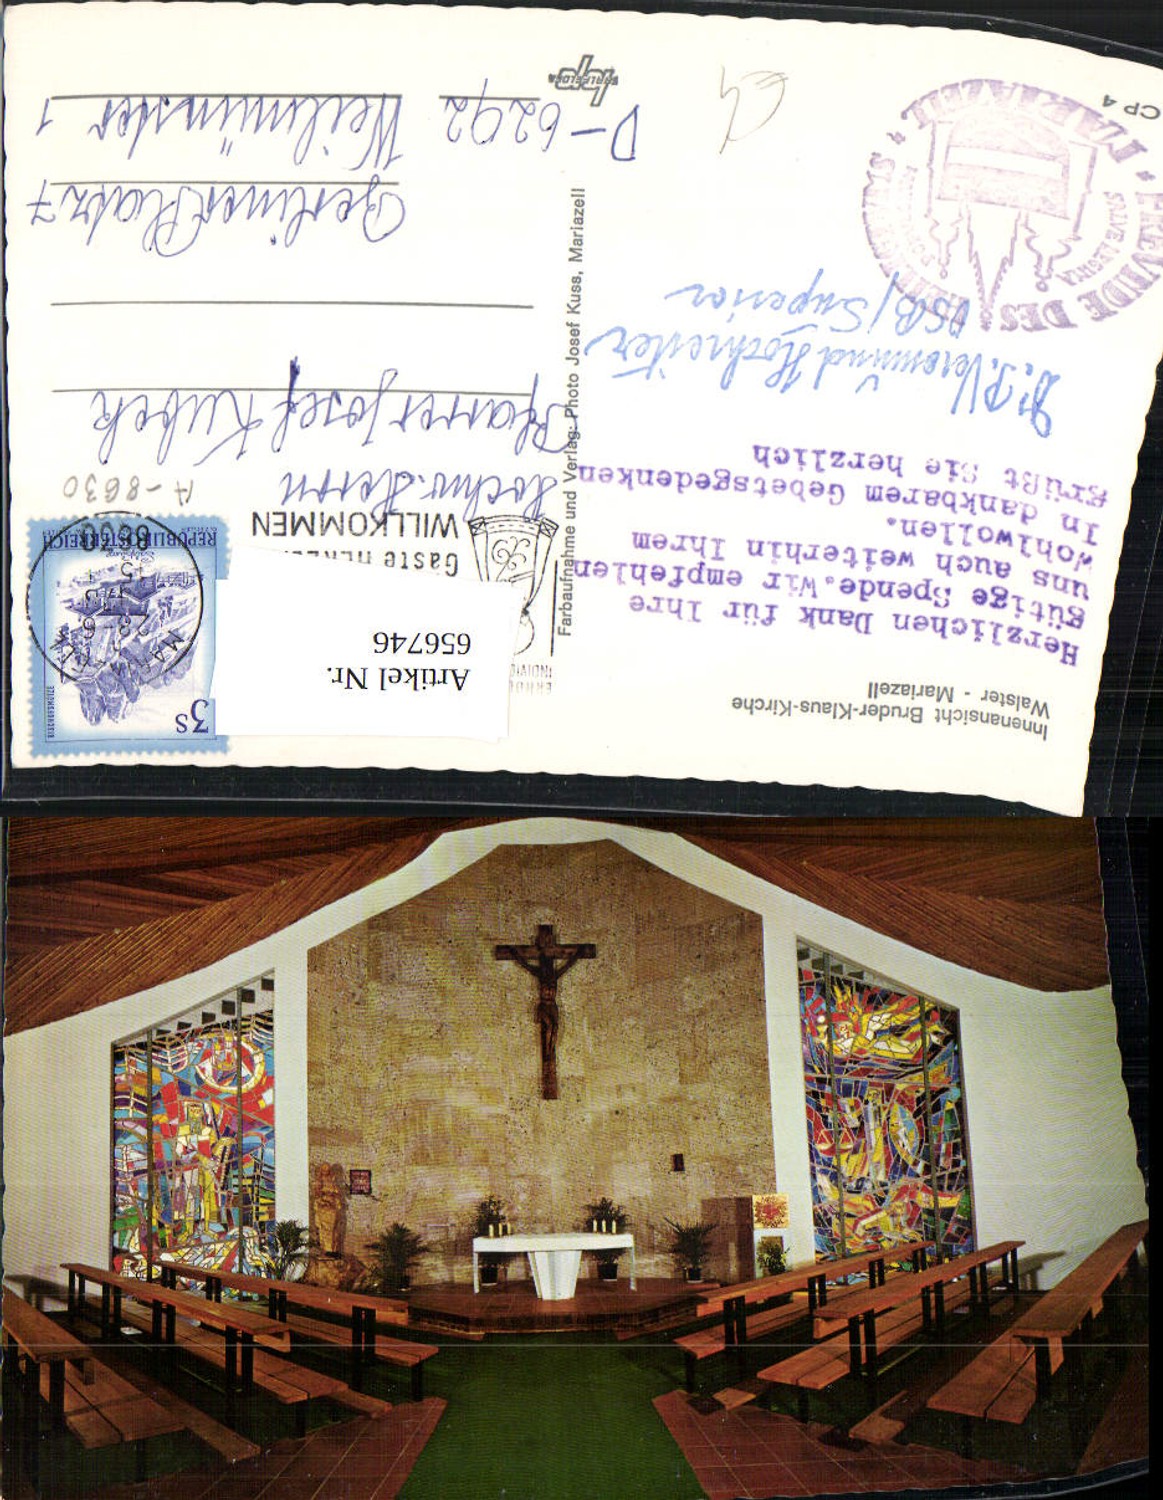 Innenansicht Bruder-Klaus-Kirche
Walster - Mariazell
Herzlichen Dank für Ihre
gütige Spende. Wir empfehlen
uns auch weiterhin Ihrem
Wohlwollen.
In dankbarem Gebetsgedenken
grüßt Sie herzlich
Dr. P. Veremund Hochreiter
OSB/Superior
FREUNDE DES
MARIAZELL
SALVE
CP 4
Farbaufnahme und Verlag: Photo Josef Kuss, Mariazell
Artikel Nr.
656746
Gäste
WILLKOMMEN
3 S
BISCHOFSMÜTZE
REPUBLIK ÖSTERREICH
A-8630
Hochw. Herrn
Pfarrer Josef Kubek
Berliner Platz 7
D-6292 Weilmünster 1